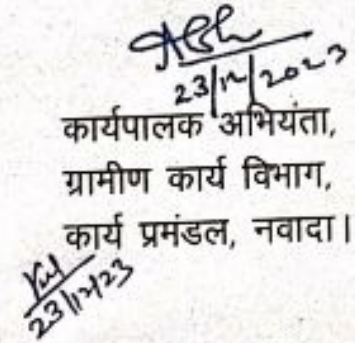 23/12/2023
कार्यपालक अभियंता,
ग्रामीण कार्य विभाग,
कार्य प्रमंडल, नवादा।
23/12/23